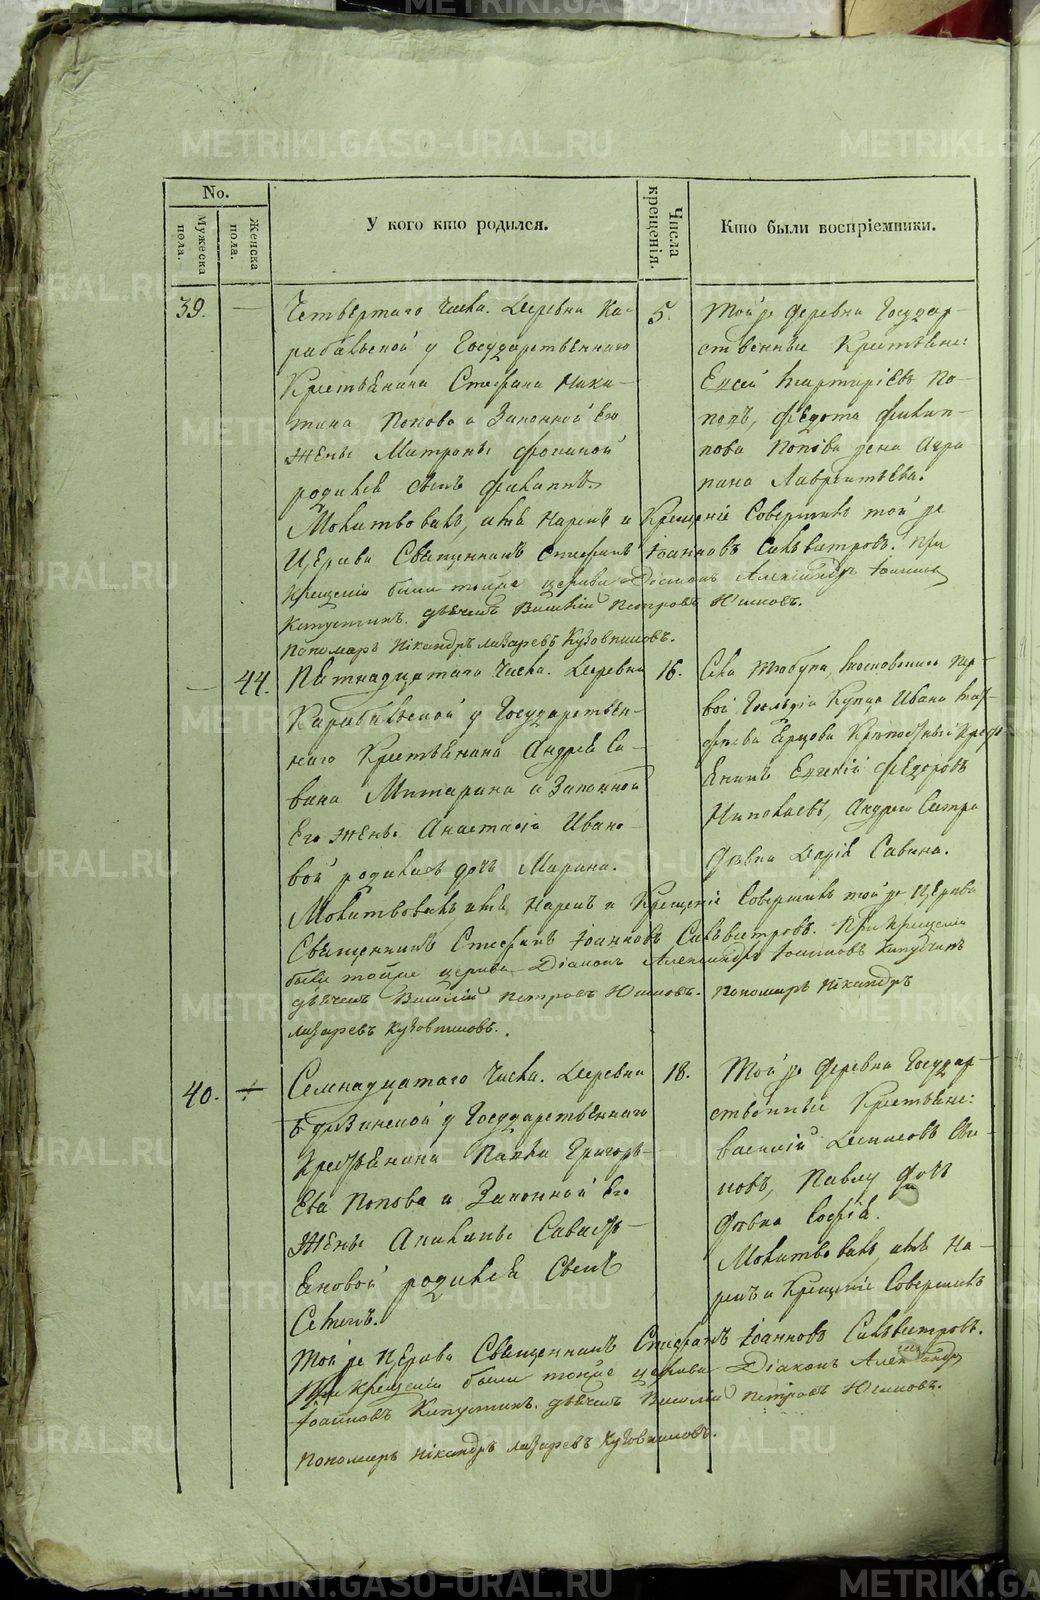 METRIKI.GASO-URAL.RU
No.
Мужеска пола.
Женска пола.
У кого кто родился.
Числа крещенія.
Кто были воспріемники.
39. — Четвертаго Числа. Деревни Ка-
рабальской у Государственнаго
Крестьянина Стефана Ники-
тина Попова и Законной Его
Жены Матроны Фоминой
родился сынъ Филиппъ.
5. Той же деревни Государ-
ственные Крестьяне:
Елисей По-
повъ, Федота Филип-
пова Попова жена Агра-
пина Лаврентьева.
Молитвовалъ, имя Нарекъ и Крещеніе Совершилъ той же
Церкви Священникъ Стефанъ Іоанновъ Сильвестровъ. При
Крещеніи были тойже церкви Діаконъ Александръ Іоанновъ
Капустинъ. дьячекъ Василій Петровъ
Пономарь Никандръ Лазаревъ Кузовниковъ.
— 44. Пятнадцатаго Числа. Деревни
Карабальской у Государствен-
наго Крестьянина Андрея Са-
вина Митарина и Законной
Его Жены Анастасіи Ивано-
вой родилась дочь Марина.
16. Села Тюбука, Московскаго пер-
вой Гильдіи Купца Ивана
Крепостный Кресть
янинъ Евгеній Федоровъ
Николаевъ, Андрея Сестра
Дѣвка Савина.
Молитвовалъ имя Нарекъ и Крещеніе Совершилъ той же Церкви
Священникъ Стефанъ Іоанновъ Сильвестровъ. При крещеніи
были тойже церкви Діаконъ Александръ Іоанновъ Капустинъ
дьячекъ Василій Петровъ Пономарь Никандръ
Лазаревъ Кузовниковъ.
40. Семнадцатаго Числа. Деревни
у Государственнаго
Крестьянина Павла Григорь-
ева Попова и Законной Его
Жены Акилины Савасть-
яновой родился Сынъ
Семенъ.
18. Той же деревни Государ-
ственные Крестьяне:
Василій Денисовъ
Павлу Дочь
Дѣвка Софія.
Молитвовалъ, имя На-
рекъ и Крещеніе Совершилъ
Той же Церкви Священникъ Стефанъ Іоанновъ Сильвестровъ.
При Крещеніи были тойже церкви Діаконъ Александръ
Іоанновъ Капустинъ. дьячекъ Василій Петровъ
Пономарь Никандръ Лазаревъ Кузовниковъ.